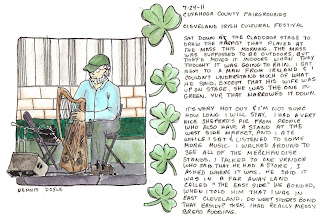 7-24-11
CUYAHOGA COUNTY FAIRGROUNDS
CLEVELAND IRISH CULTURAL FESTIVAL
SAT DOWN AT THE CLADDAGH STAGE TO
DRAW THE HARPIST THAT PLAYED AT
THE MASS THIS MORNING. THE MASS
WAS SUPPOSED TO BE OUTDOORS, BUT
THEY'D MOVED IT INDOORS WHEN THEY
THOUGHT IT WAS GOING TO RAIN. I SAT
NEXT TO A MAN FROM IRELAND & I
COULDN'T UNDERSTAND MUCH OF WHAT
HE SAID, EXCEPT THAT HIS WIFE WAS
UP ON STAGE. SHE WAS THE ONE IN
GREEN. YUP, THAT NARROWED IT DOWN.
IT'S VERY HOT OUT & I'M NOT SURE
HOW LONG I WILL STAY. I HAD A VERY
NICE SHEPERD'S PIE FROM PEOPLE
WHO ALSO HAVE A STAND AT THE
WEST SIDE MARKET, AND I ATE
WHILE I SAT & LISTENED TO SOME
MORE MUSIC. I WALKED AROUND TO
SEE ALL OF THE MERCHANDISE
STANDS. I TALKED TO ONE VENDOR
WHO SAID THAT HE HAD A STORE. I
ASKED WHERE IT WAS. HE SAID IT
WAS IN A FAR AWAY LAND
CALLED "THE EAST SIDE". HE NODDED,
WHEN I TOLD HIM THAT I WAS IN
EAST CLEVELAND. DO WEST SIDERS BOND
THAT EASILY? THEN, HAD REALLY MESSY
BREAD PUDDING.
DENNIS DOYLE